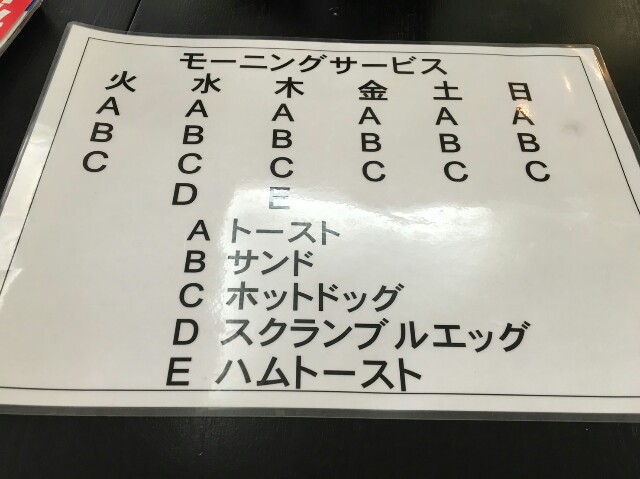 モーニングサービス
火 水 木 金 土 日
A A A A A A
B B B B B B
C C C C C C
D E
A トースト
B サンド
C ホットドッグ
D スクランブルエッグ
E ハムトースト